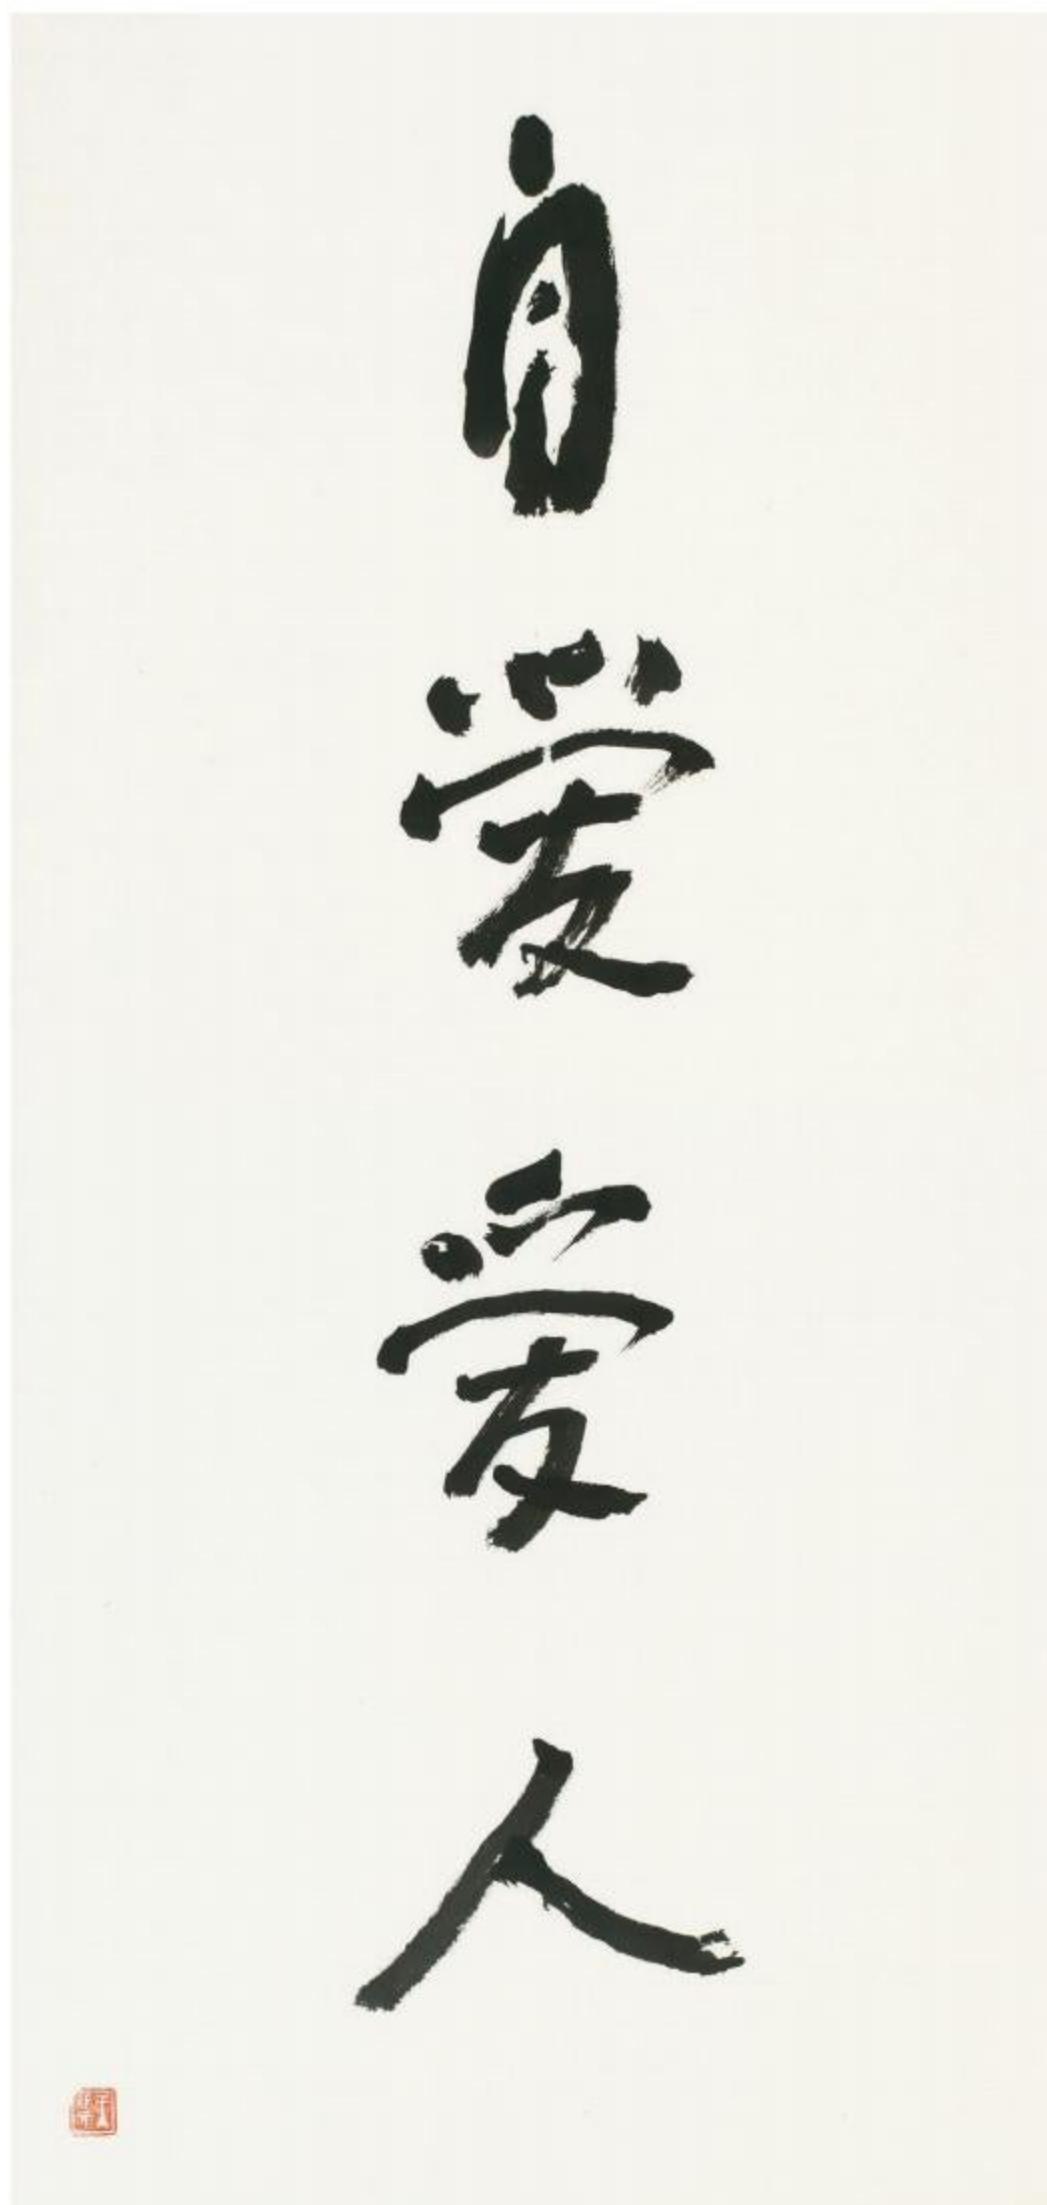 自爱爱人